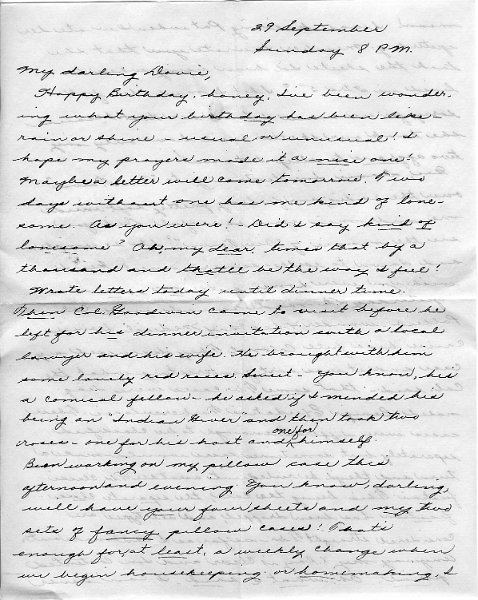 29 September
Sunday 8 P.M.
My darling Davie,
Happy Birthday, honey. I've been wonder-
ing what your birthday has been like -
rain or shine - usual or unusual! I
hope my prayers made it a nice one!
Maybe a letter will come tomorrow. Two
days without one has me kind of lone-
some. As you were! Did I say kind of
lonesome? Oh, my dear, times that by a
thousand and that'll be the way I feel!
Wrote letters today until dinner time.
Then Col. Goodwin came to visit before he
left for his dinner invitation with a local
lawyer and his wife. He brought with him
some lovely red roses. Sweet - You know, he's
a comical fellow - he asked if I minded his
being an "Indian Giver" and then took two
roses - one for his host and one for himself.
Been working on my pillow case this
afternoon and evening. You know, darling,
will have your four sheets and my two
sets of fancy pillow cases! That's
enough for, at least, a weekly change when
we begin housekeeping or homemaking. I